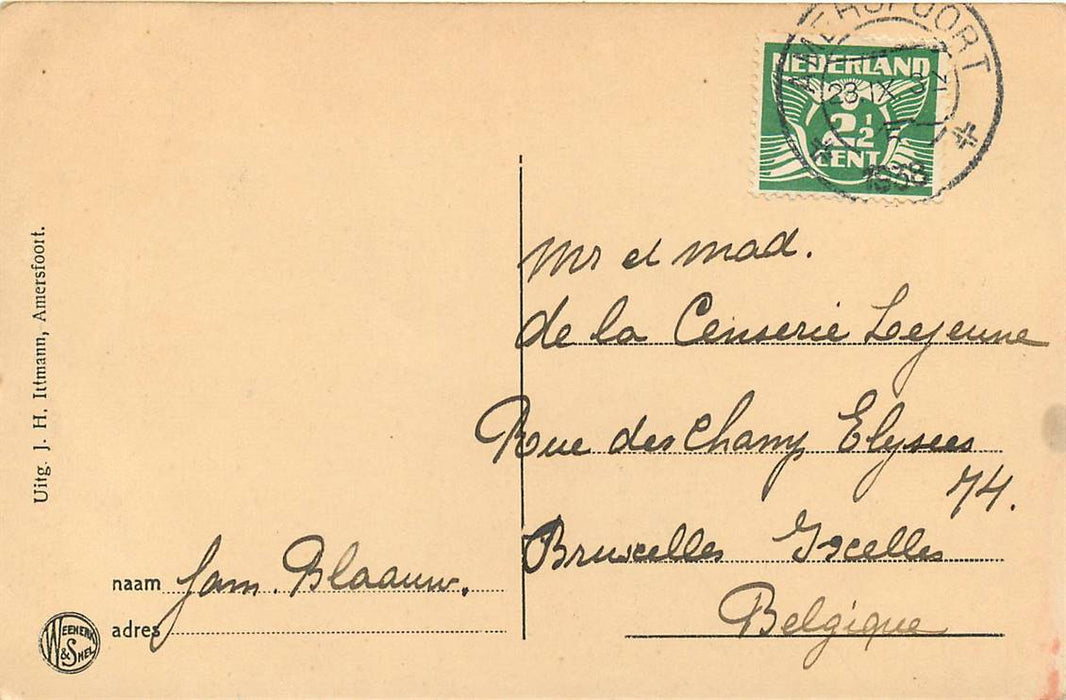 AMERSFOORT
23.IX.3
1938
NEDERLAND
2½
CENT
Mr et mad.
de la Censerie Lejeune
Rue des Champ Elysees
74.
Bruxelles Ixcelles
Belgique
Uitg. J. H. Ittmann, Amersfoort.
naam fam. Blaauw.
adres
WEENENK
& SNEL